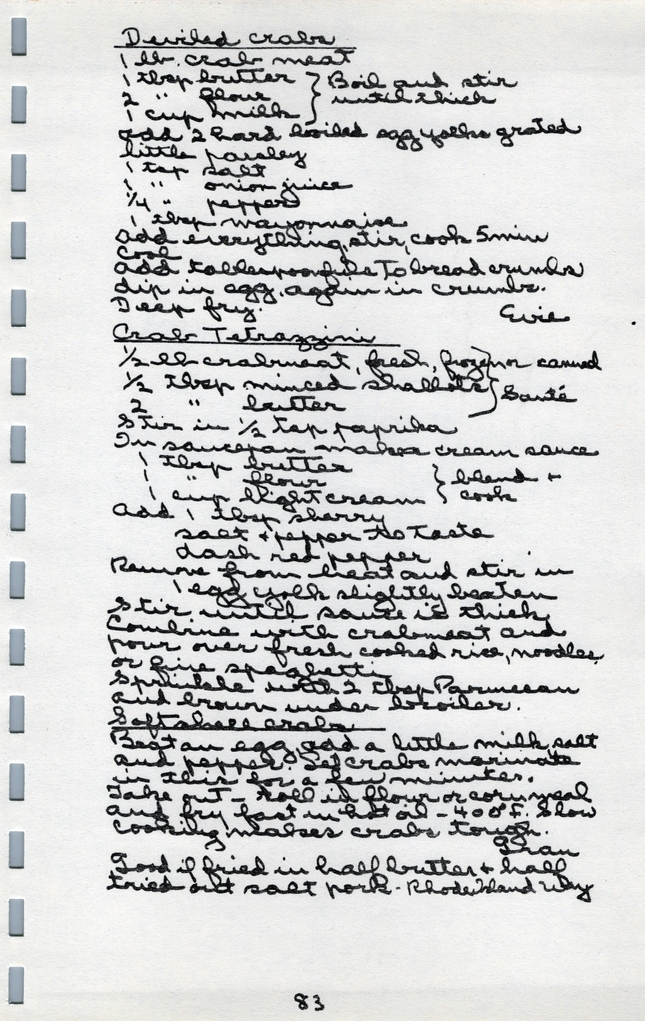 Deviled crabs
1 lb. crab meat
1 tbsp butter } Boil and stir
2 " flour } until thick
1 cup milk }
add 2 hard boiled egg yolks grated
little parsley
1 tsp salt
1 " onion juice
1/4 " pepper
1 tbsp mayonnaise
add everything, stir, cook 5 min
Cool
add tablespoonfuls to bread crumbs
dip in egg, again in crumbs.
Deep fry.
Evie
Crab Tetrazzini
1/2 lb crabmeat, fresh, frozen or canned
1/2 tbsp minced shallots } Sauté
2 " butter }
Stir in 1/2 tsp paprika
In saucepan make a cream sauce
1 tbsp butter
1 " flour } blend +
1 cup light cream } cook
add 1 tbsp sherry
salt + pepper to taste
dash red pepper
Remove from heat and stir in
1 egg yolk slightly beaten
Stir until sauce is thick.
Combine with crabmeat and
pour over fresh cooked rice, noodles
or fine spaghetti
Sprinkle with 2 tbsp Parmesan
and brown under broiler.
Soft shell crabs
Beat an egg, add a little milk, salt
and pepper. Let crabs marinate
in this for a few minutes.
Take out - roll in flour or corn meal
and fry fast in hot oil - 400°F. Slow
cooking makes crabs tough.
Fran
Good if fried in half butter + half
tried out salt pork - Rhode Island Way
83